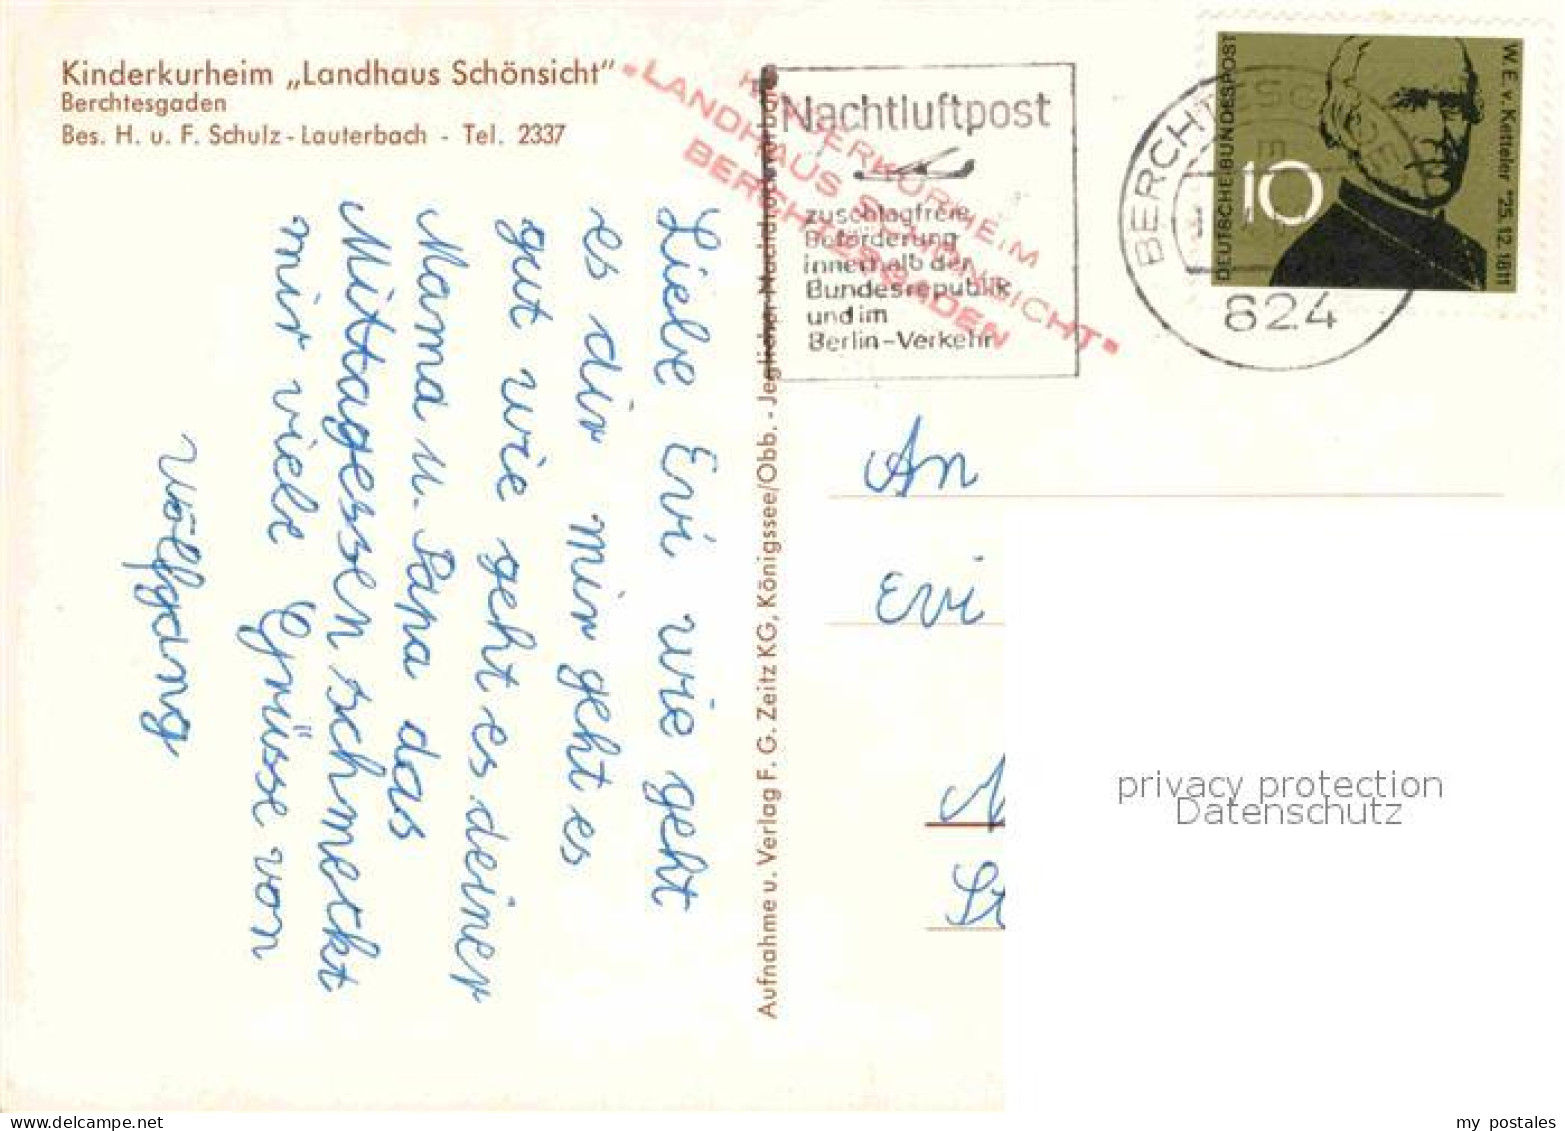 Kinderkurheim „Landhaus Schönsicht"
Berchtesgaden
Bes. H. u. F. Schulz-Lauterbach - Tel. 2337
KINDERKURHEIM
"LANDHAUS SCHÖNSICHT"
BERCHTESGADEN
Nachtluftpost
zuschlagfreie
Beförderung
innerhalb der
Bundesrepublik
und im
Berlin-Verkehr
BERCHTESGADEN
824
DEUTSCHE BUNDESPOST
10
W. E. v. Ketteler *25. 12. 1811
Liebe Evi wie geht
es dir mir geht es
gut wie geht es deiner
Mama u. Papa das
Mittagessen schmeckt
mir viele Grüsse von
Wolfgang
Aufnahme u. Verlag F. G. Zeitz KG, Königssee/Obb. - Jeglicher Nachdruck verboten
An
Evi
privacy protection
Datenschutz
my postales